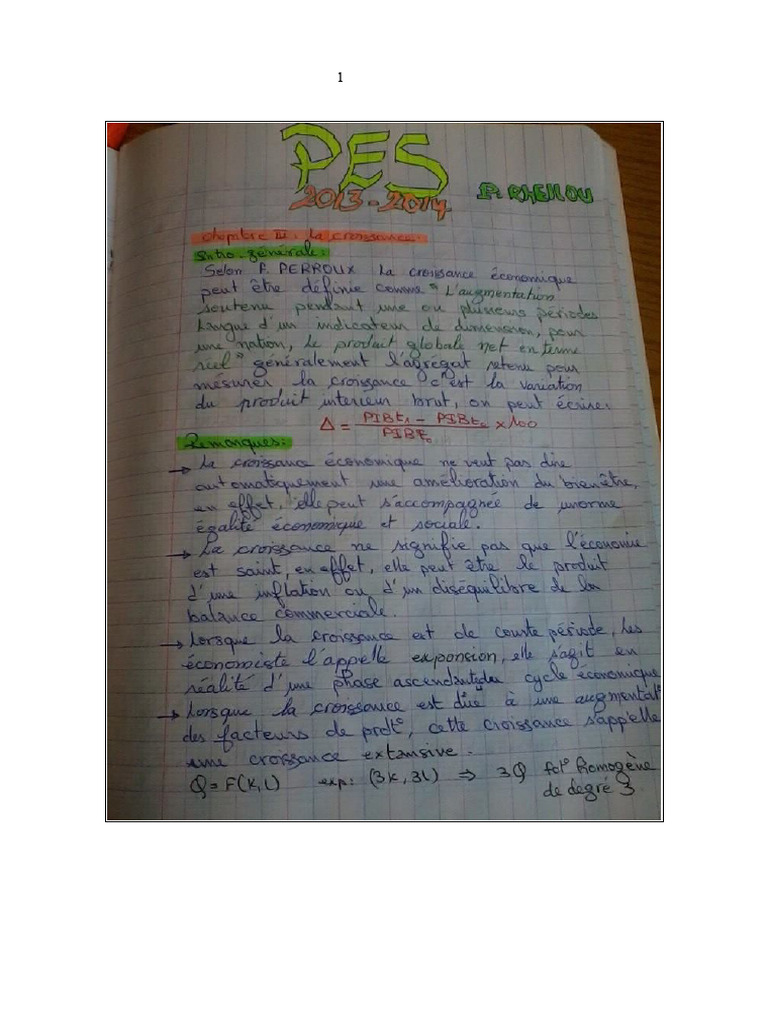 1
PES
2013-2014
P. RHELLOU
Chapitre III: La croissance.
Intro-générale:
Selon F. PERROUX La croissance économique
peut être définie comme "L'augmentation
soutenu pendant une ou plusieurs périodes
langue d'un indicateur de dimension, pour
une nation, Le produit globale net en terme
réel" généralement l'agrégat retenu pour
mésurer la croissance c'est la variation
du produit interieur brut, on peut écrire:
Δ = PIBt1 - PIBt0 / PIBt0 x 100
Remarques:
→ La croissance économique ne veut pas dire
automatiquement une amélioration du bienêtre,
en effet, elle peut s'accompagnée de
égalité économique et sociale.
→ La croissance ne signifie pas que l'économie
est saint, en effet, elle peut être le produit
d'une inflation ou d'un diséquilibre de la
balance commerciale.
→ Lorsque la croissance est de courte période, Les
économiste l'appelle expansion, elle s'agit en
réalité d'une phase ascendante du cycle économique
→ Lorsque la croissance est dûe à une augmentat°
des facteurs de prodt°, cette croissance s'appelle
une croissance extansive.
Q = F(K,L) exp: (3K, 3L) ⇒ 3Q fct° homogène
de degré 3.